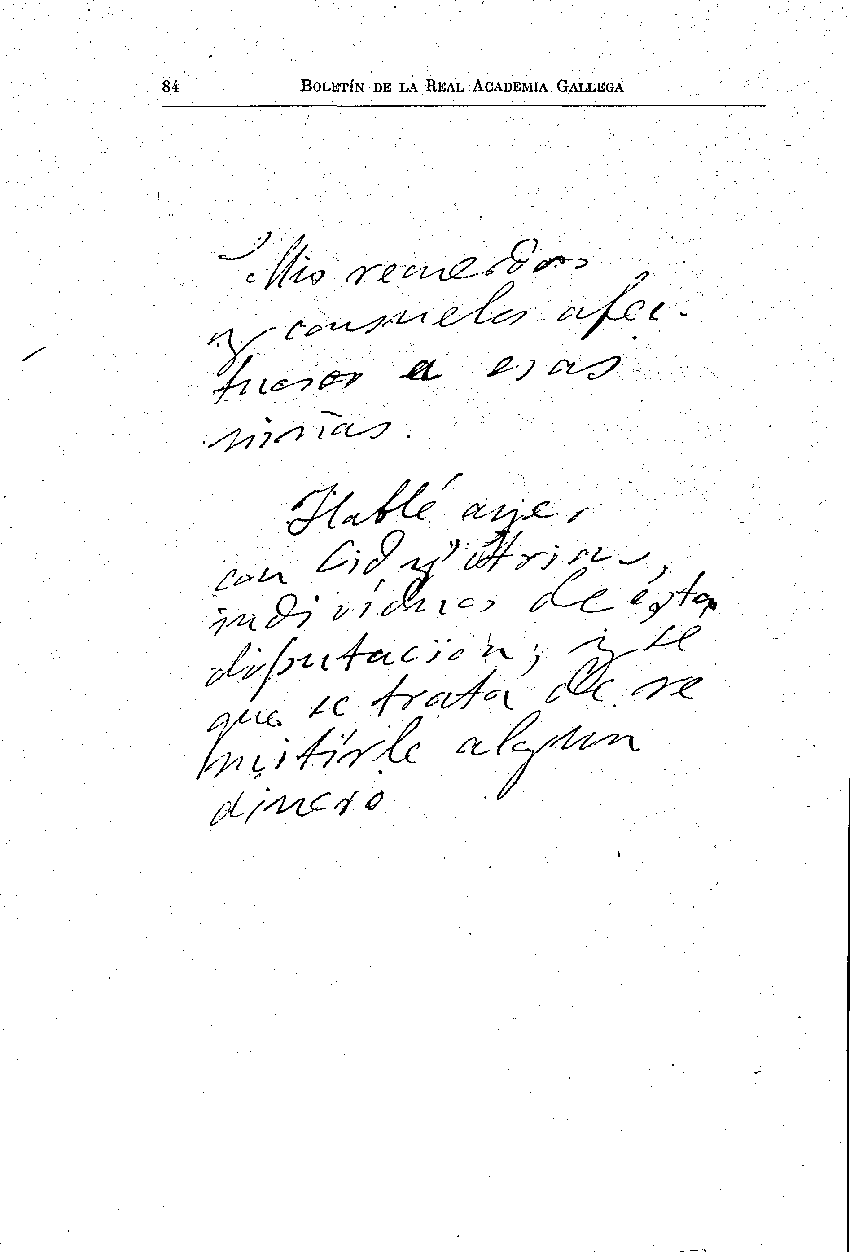 84 BOLETÍN DE LA REAL ACADEMIA GALLEGA
Mis recuerdos
y consuelos afec-
tuosos a esas
niñas.
Hablé ayer
con Cid y
individuos de ésta
diputación, y se
que se trata de re
mitirle algun
dinero